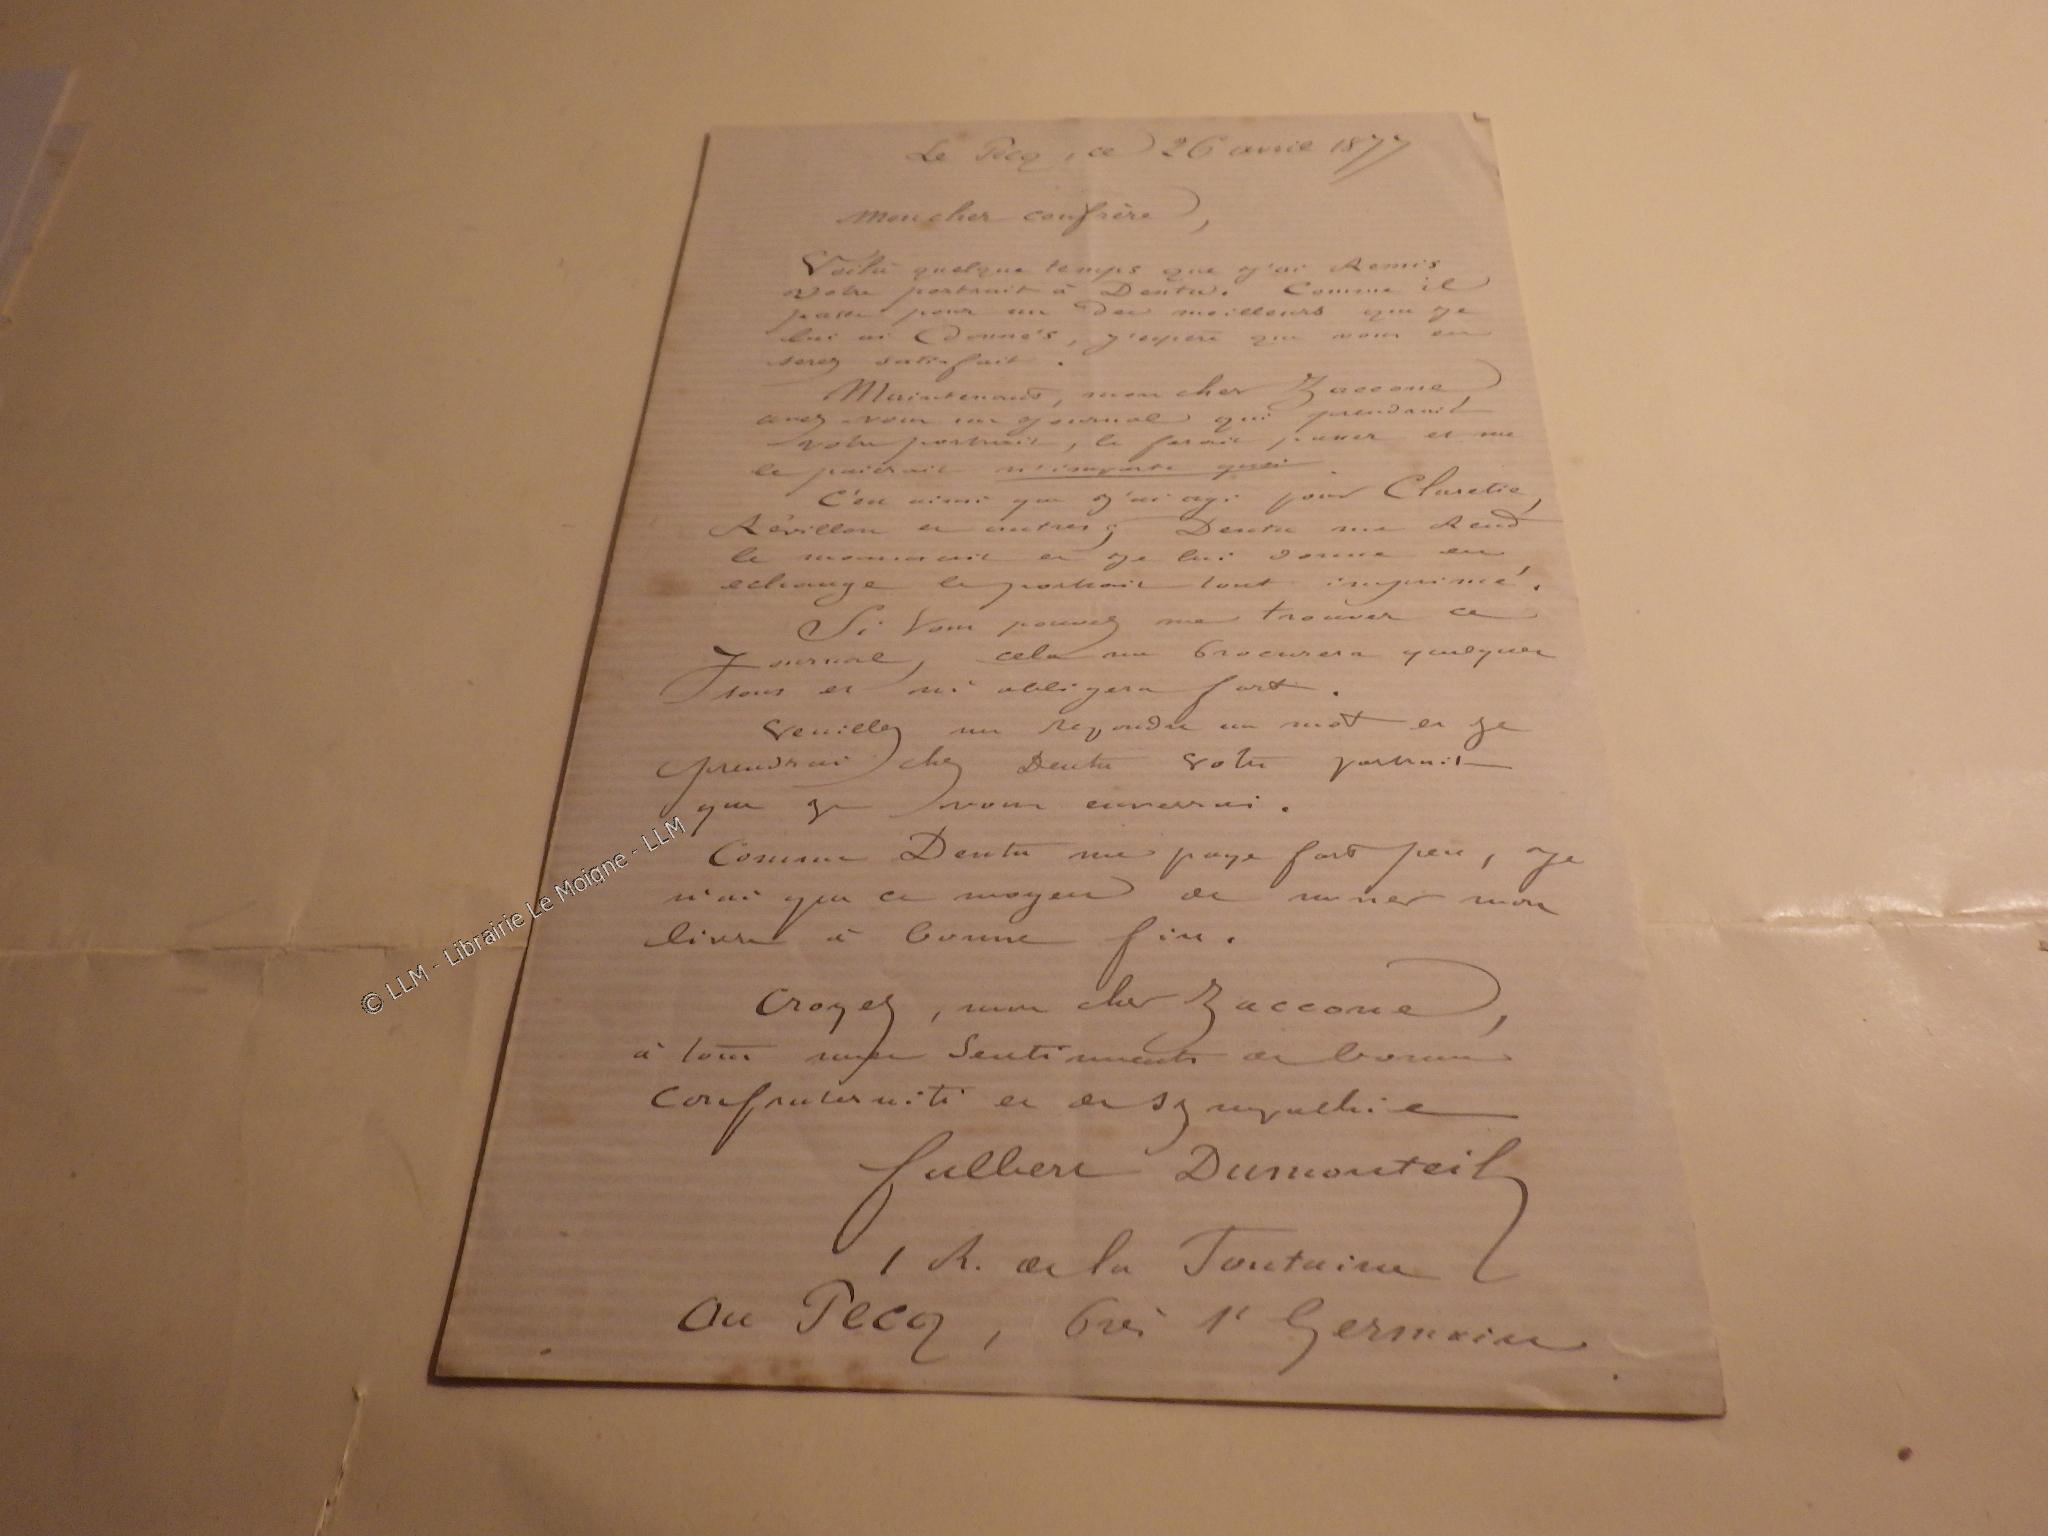 Le Pecq, ce 26 avril 1877
Mon cher confrère,
Voilà quelque temps que j'ai Remis
votre portrait à Dentu. Comme il
passe pour un des meilleurs que je
lui ai Donnés, j'espère que vous en
serez satisfait.
Maintenant, mon cher Zaccone,
avez-vous un journal qui prendrait
votre portrait, le ferait passer et me
le paierait n'importe quoi.
C'est ainsi que j'ai agi pour Claretie,
Révillon et autres; Dentu me Rend
le manuscrit et je lui donne en
echange le portrait tout imprimé.
Si Vous pouvez me trouver ce
Journal, cela me procurera quelques
sous et m'obligera fort.
Veuillez me repondre un mot et je
prendrai chez Dentu Votre portrait
que je vous enverrai.
Comme Dentu me paye fort peu, je
n'ai que ce moyen de mener mon
livre à bonne fin.
Croyez, mon cher Zaccone,
à tous mes Sentiments de bonne
Confraternité et de sympathie
Fulbert Dumonteil
1 R. de la Fontaine
Au Pecq, près St Germain
© LLM - Librairie Le Moigne - LLM